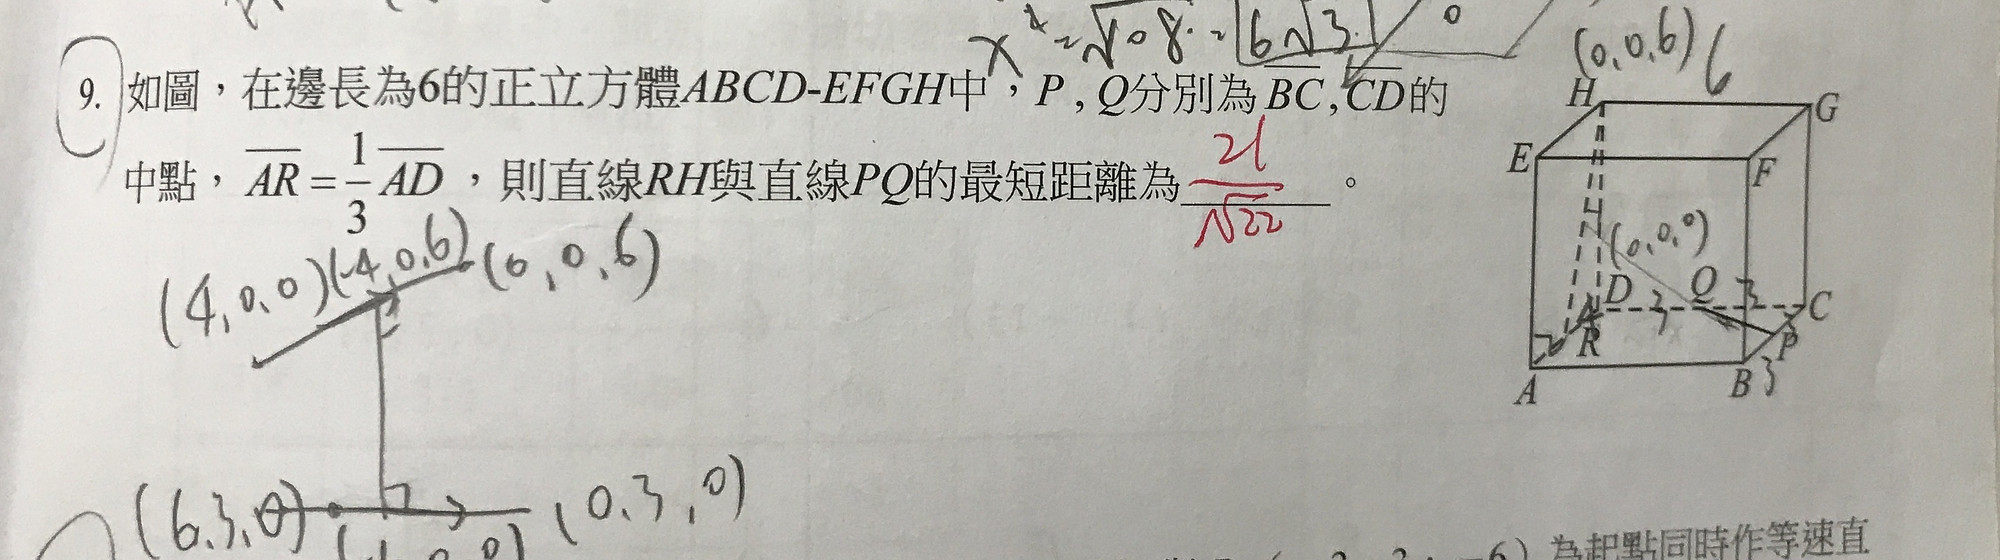 x = √108 = 6√3
9. 如圖，在邊長為6的正立方體ABCD-EFGH中，P , Q分別為BC , CD的
中點，AR = 1/3 AD，則直線RH與直線PQ的最短距離為 21/√22 。
(0,0,6) 6
H
G
E
F
(0,0,0)
D Q 3 C
3
R P
A B 3
(4,0,0) (-4,0,6) (0,0,6)
(6,3,0) (0,3,0)
為起點同時作等速直